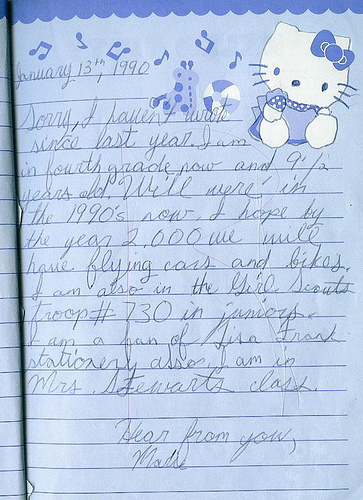 January 13th, 1990
Sorry, I havent wrote
since last year. I am
in fourth grade now and 9 1/2
years old. Well were in
the 1990's now. I hope by
the year 2,000 we will
have flying cars and bikes.
I am also in the Girl Scouts
Troop # 730 in juniors.
I am a fan of Lisa Frank
stationery also. I am in
Mrs. Stewarts class.
Hear from you,